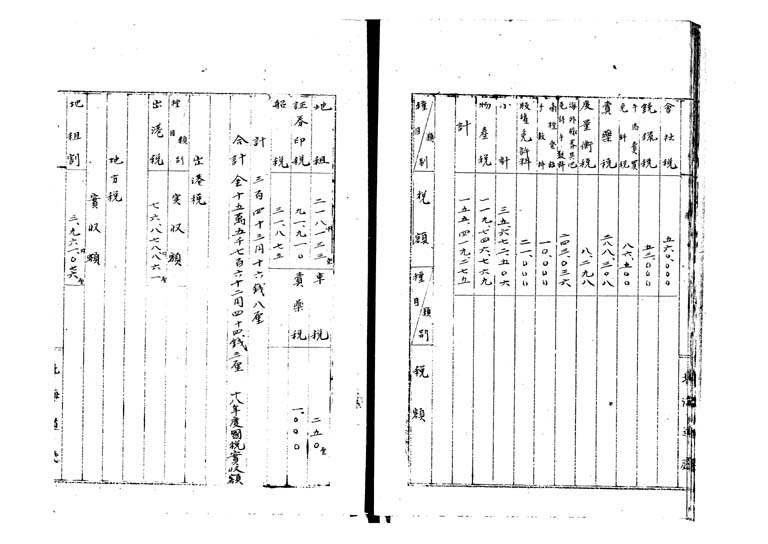 會社税 五六〇、〇〇〇
銃猟税 五三、〇〇〇
牛馬賣買免許税 八六、五〇〇
賣藥税 二八八、三〇八
度量衡税 八、二九八
二四三、〇三六
一〇、〇〇〇
板塩免許料 二一、〇〇〇
小計 三五六七二、五〇六
物産税 一一九、七四六、七六九
計 一五五、四一九、二七五
種目 類別 税額 種目 類別 税額
地租 二一八、一三三 車税 二五〇
証券印税 九一、九一〇 賣藥税 一、〇〇〇
船税 三一、八七五
計 三百四十三円十六銭八厘
合計 金十五萬五千七百六十二円四十四銭三厘 十八年度國税實收額
出港税
種目 類別 実収額
出港税 七六八七八、八六一
地方税
實收額
地租割 三、九六一、〇七六